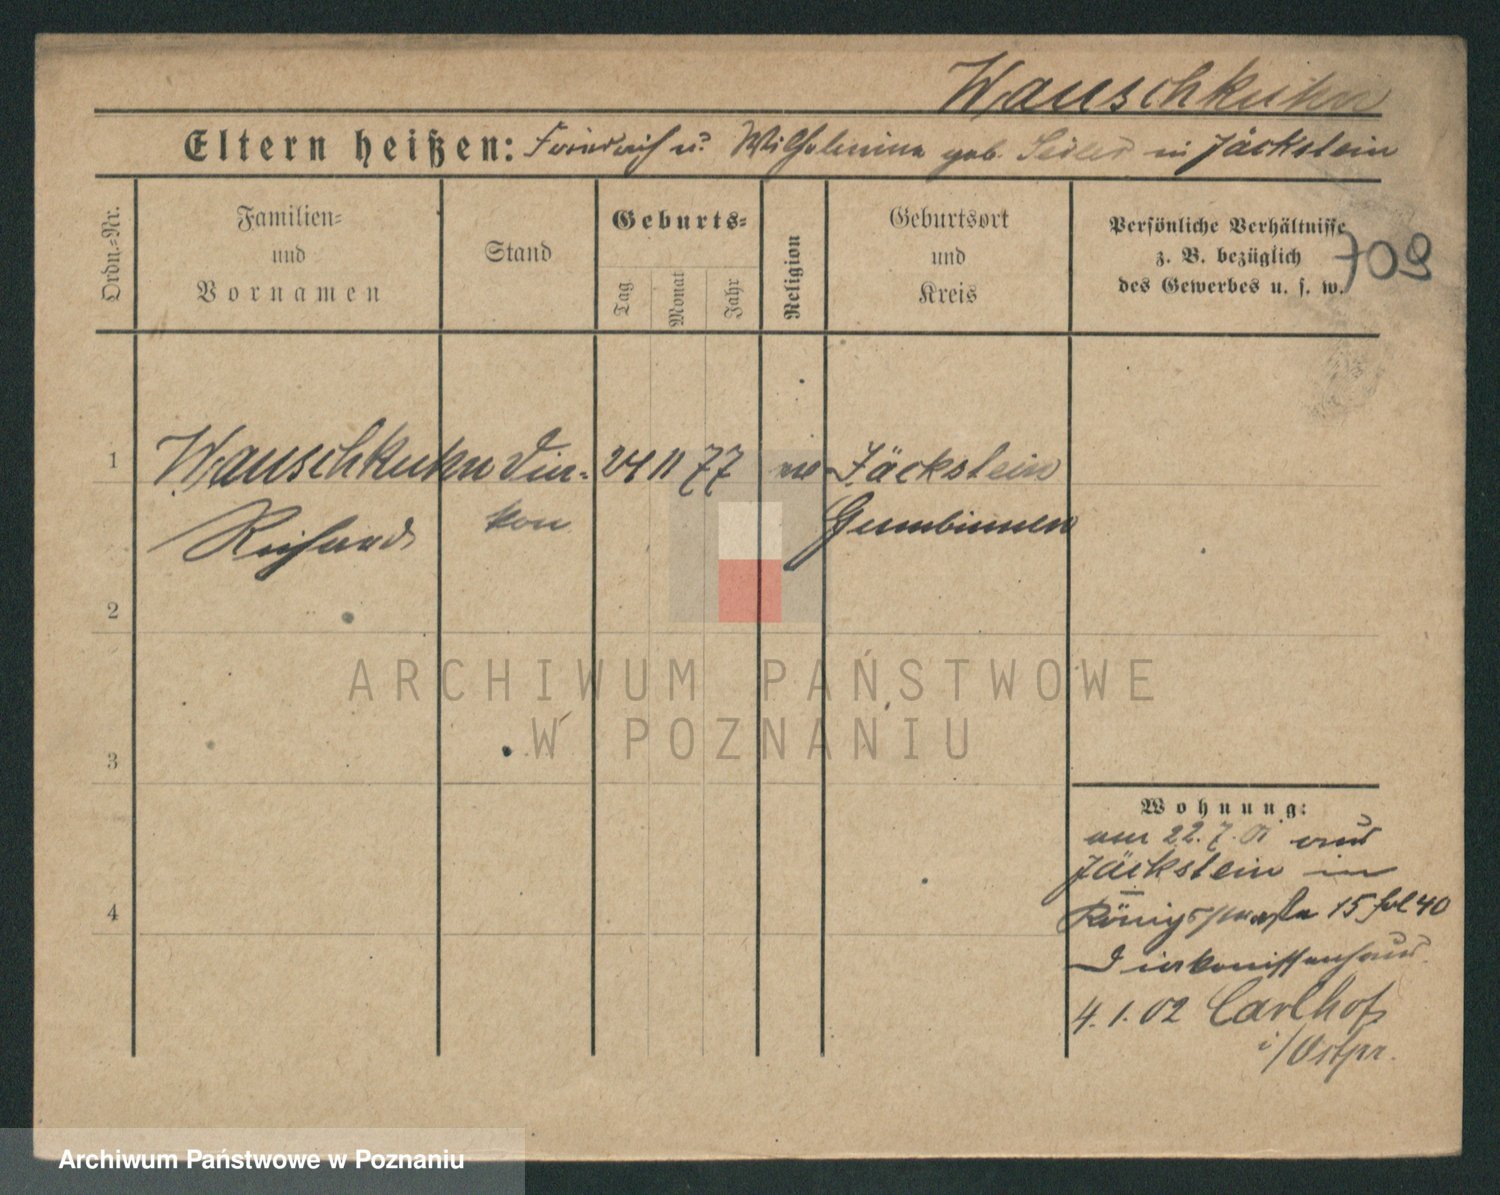 Wauschkuhn
Eltern heißen: Friedrich u. Wilhelmine geb. Seiler in Jäckstein
Ordn.=Nr.
Familien=
und
Vornamen
Stand
Geburts=
Tag
Monat
Jahr
Religion
Geburtsort
und
Kreis
Persönliche Verhältnisse
z. B. bezüglich
des Gewerbes u. s. w.
709
1 Wauschkuhn Dia= 24 11 77 ev Jäckstein
Richard kon Gumbinnen
2
3
4
Wohnung:
am 22.7.01 aus
Jäckstein in
Königstraße 15 fol 40
Diakonissenhaus
4.1.02 Carlhof
i/Ostpr.
ARCHIWUM PAŃSTWOWE
W POZNANIU
Archiwum Państwowe w Poznaniu